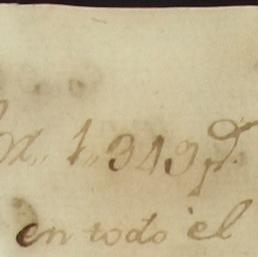 1,,343 p.
en todo el